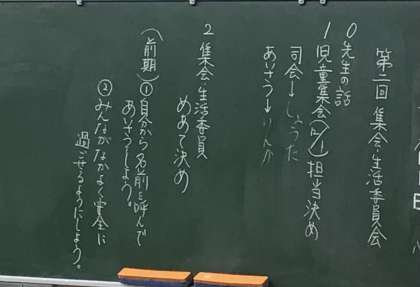 第二回 集会・生活委員会
0 先生の話
1 児童集会() 担当決め
司会→しょうた
あいさつ→りんか
2 集会・生活委員
めあて決め
(前期) ①自分から名前を呼んで
あいさつしよう。
②みんながなかよく安全に
過ごせるようにしよう。